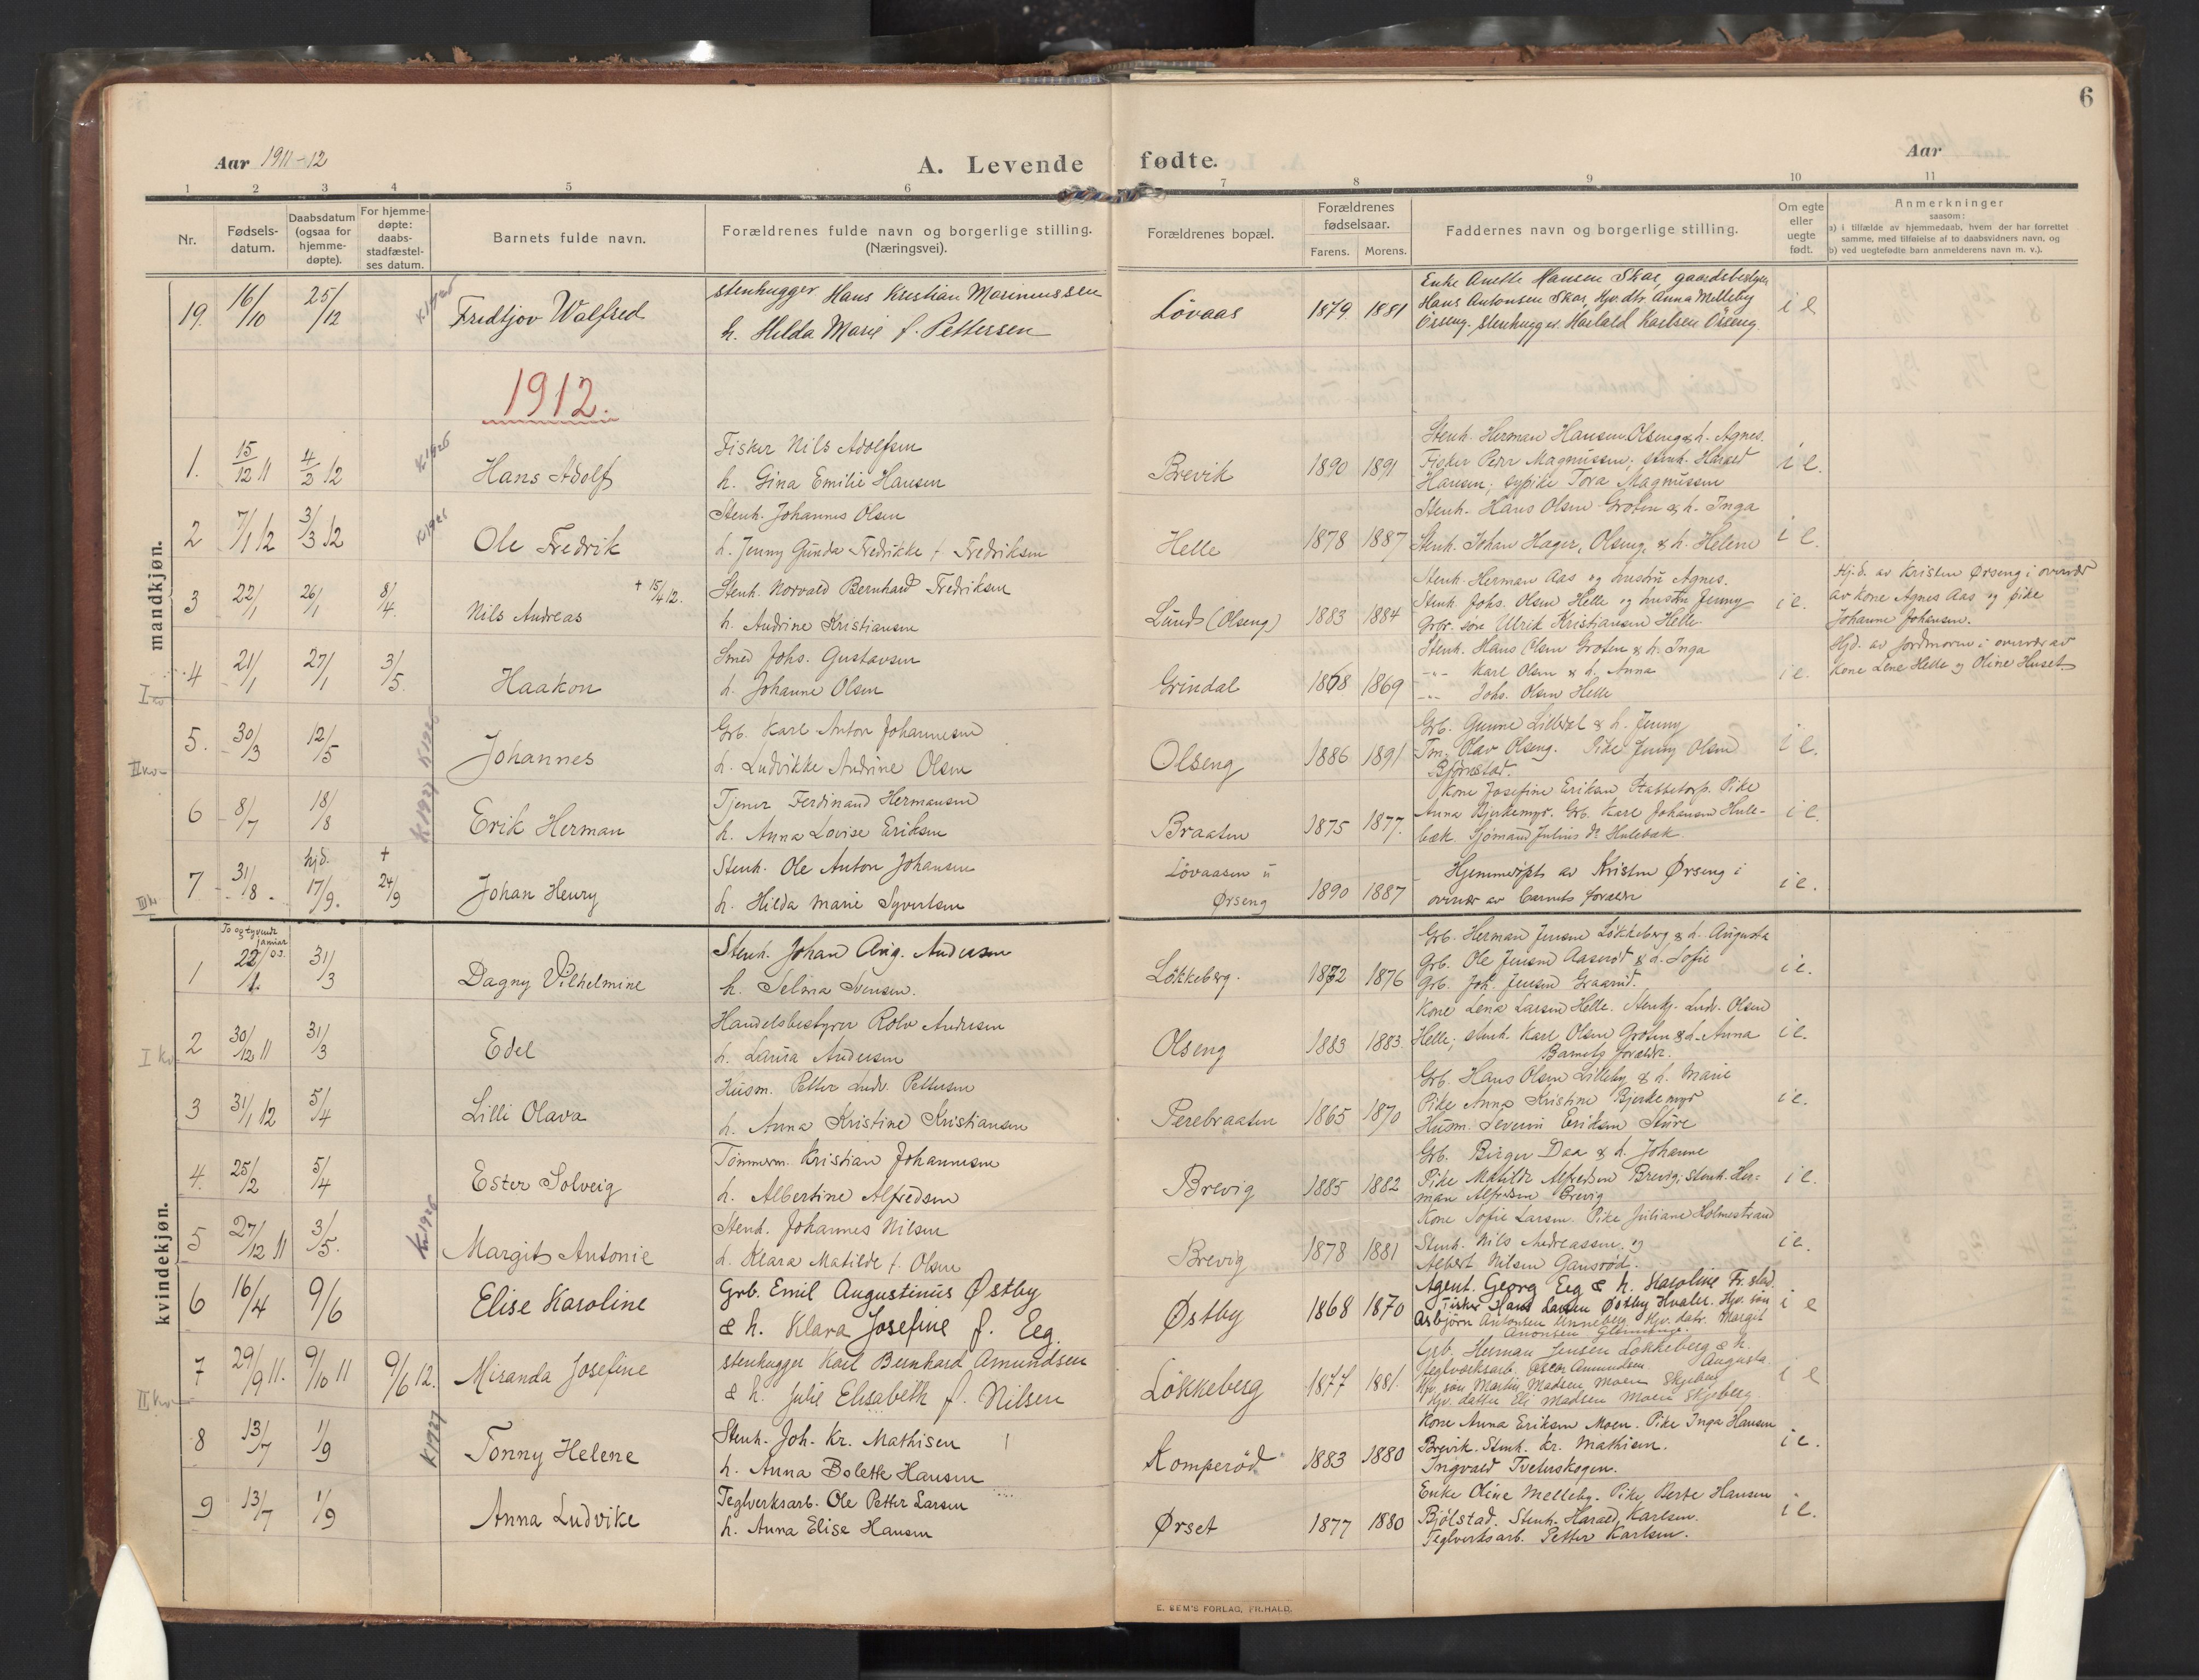 6
Aar 1911-12
A. Levende fødte.
Aar
1 2 3 4 5 6 7 8 9 10 11
Nr.
Fødsels-
datum.
Daabsdatum
(ogsaa for
hjemme-
døpte).
For hjemme-
døpte:
daabs-
stadfæstel-
ses datum.
Barnets fulde navn.
Forældrenes fulde navn og borgerlige stilling.
(Næringsvei).
Forældrenes bopæl.
Forældrenes
fødselsaar.
Farens. Morens.
Faddernes navn og borgerlige stilling.
Om egte
eller
uegte
født.
Anmerkninger
saasom:
a) i tilfælde av hjemmedaab, hvem der har forrettet
samme, med tilføielse af to daabsvidners navn, og
b) ved uegtefødte barn anmelderens navn m. v.).
mandkjøn.
19. 16/10 25/12 Fredtjov Walfred
stenhugger Hans Kristian Marinussen
h. Hilda Marie f. Pettersen
Lövaas 1879 1881
Enke Anette Hansen Skar, gaardsbestyrer
Hans Antonsen Skar, Hjv. dtr. Anna Melleby
Örseng, stenhugger Harald Karlsen Örseng
i e
1912.
1. 15/12 11 4/2 12 K 1926 Hans Adolf
Fisker Nils Adolfsen
h. Gina Emilie Hansen
Brevik 1890 1891
Stenh. Herman Hansen Olseng & h. Agnes.
Fisker Peder Magnussen; stenh. Harald
Hansen; sypike Tora Magnussen
i e.
2 7/1 12 3/3 12 K 1926 Ole Fredrik
Stenh. Johannes Olsen
h. Jenny Gunda Fredrikke f. Fredriksen
Helle 1878 1887
Stenh. Hans Olsen Groten & h. Inga
Stenh. Johan Hager, Olseng, & h. Helene
i e.
3 22/1 26/1 8/4. Nils Andreas + 15/4 12.
Stenh. Norvald Bernhard Fredriksen
h. Andrine Kristiansen
Lund (Olseng) 1883 1884
Stenh. Herman Aas og hustru Agnes.
Stenh. Johs. Olsen Helle og hustru Jenny
Grbr. søn Ulrik Kristiansen Helle.
i e.
Hj.d. av Kristen Ørseng i overvær
av kone Agnes Aas og pike
Johanne Johansen.
4 21/1 27/1 3/5. Haakon
Smed Johs. Gustavsen
h. Johanne Olsen
Grindal 1868 1869
Stenh. Hans Olsen Groten & h. Inga
-"- Karl Olsen & h. Anna
-"- Johs. Olsen Helle
i e.
Hjd. av jordmoren i overvær av
Kone Lene Helle og Oline Huset
5. 30/3 12/5 K 1926 Johannes
Grb. Karl Anton Johannesen
h. Ludvikke Andrine Olsen
Olseng 1886 1891
Grb. Gunne Lillevel & h. Jenny
Tm. Olav Olseng. Pike Jenny Olsen
Bjørnstad.
i e.
6 8/7 18/8 K 1927 Erik Herman
Tjener Ferdinand Hermansen
h. Anna Lovise Eriksen
Braaten 1875 1877.
Kone Josefine Eriksen Stabbetorp. Pike
Anna Bjerkemyr. Grb. Karl Johansen Hule-
bæk. Sjømand Julius d° Hulebæk
i e.
7 31/8. hjd. 17/9. + 24/9 Johan Henry
Stenh. Ole Anton Johansen
h. Hilda Marie Syvertsen
Løvaasen u
Ørseng
1890 1887
Hjemmedøpt av Kristen Ørseng i
overvær av barnets forældre
i e.
kvindekjøn.
1 To og tyvende januar 22/1. 31/3 Dagny Vilhelmine
Stenh. Johan Aug. Andersen
h. Selma Svensen.
Løkkeberg. 1872 1876
Grb. Herman Jensen Løkkeberg & h. Augusta
Grb. Ole Jensen Aaserød & h. Sofie
Grb. Joh. Jensen Graarud.
i e.
2 30/12 11 31/3 Edel
Handelsbestyrer Rolv Andersen
h. Laura Andersen
Olseng 1883 1883.
Kone Lena Larsen Helle. Stenhj. Ludv. Olsen
Helle; stenh. Karl Olsen Groten & h. Anna
Barnets forældre.
i e.
3 31/1 12 5/4 Lilli Olava
Husm. Petter Ludv. Pettersen
h. Anna Kristine Kristiansen
Perebraaten 1865 1870
Grb. Hans Olsen Lilleby & h. Marie
Pike Anna Kristine Bjerkemyr
Husm. Severin Eriksen Sture
i e.
4. 25/2 5/4 Ester Solveig
Tømmerm. Kristian Johannesen
h. Albertine Alfredsen
Brevig 1885 1882
Grb. Birger Daa & h. Johanne
Pike Matilde Alfredsen Brevig; Stenh. Her-
man Alfredsen Brevig
i e.
5 27/12 11 3/5. K 1926 Margit Antonie
Stenh. Johannes Nilsen
h. Klara Matilde f. Olsen
Brevig 1878 1881
Kone Sofie Larsen. Pike Juliane Holmestrand
Stenh. Nils Andreassen og
Albert Nilsen Gansrød.
i e.
6 16/4 9/6 Elise Karoline
Grb. Emil Augustinus Østby
& h. Klara Josefine f. Eeg.
Østby 1868 1870
Agent. Georg Eeg & h. Karoline Fr.stad.
Fisker Hans Larsen Østby Hvaler. Hjv. søn
Asbjörn Antonsen Unneberg Hjv. datr. Margit
i e
7 29/9 11. 9/10 11 9/6 12. Miranda Josefine
stenhugger Karl Bernhard Amundsen
& h. Julie Elisabeth f. Nilsen
Lökkeberg 1877 1881.
Grb. Herman Jensen Løkkeberg & h.
Augusta.
teglværksarb. Oscar Amundsen.
Hjv. søn Martin Madsen Moen Skjeberg
Hjv. datter Eli Madsen Moen Skjeberg
i e
8 13/7 1/9 K 1927 Tonny Helene
Stenh. Joh. Kr. Mathisen
h. Anna Bolette Hansen
Komperöd 1883 1880
Kone Anna Eriksen Moen. Pike Inga Hansen
Brevik. Stenh. Kr. Mathisen.
Ingvald Tveterskogen.
i e.
9 13/7 1/9 Anna Ludvike
Teglverksarb. Ole Petter Larsen
h. Anna Elise Hansen
Ørset 1877 1880
Enke Oline Melleby. Pike Berte Hansen
Bjølstad. Stenh. Harald Karlsen.
Teglverksarb. Petter Karlsen.
i e.
E. SEM'S FORLAG, FR.HALD.